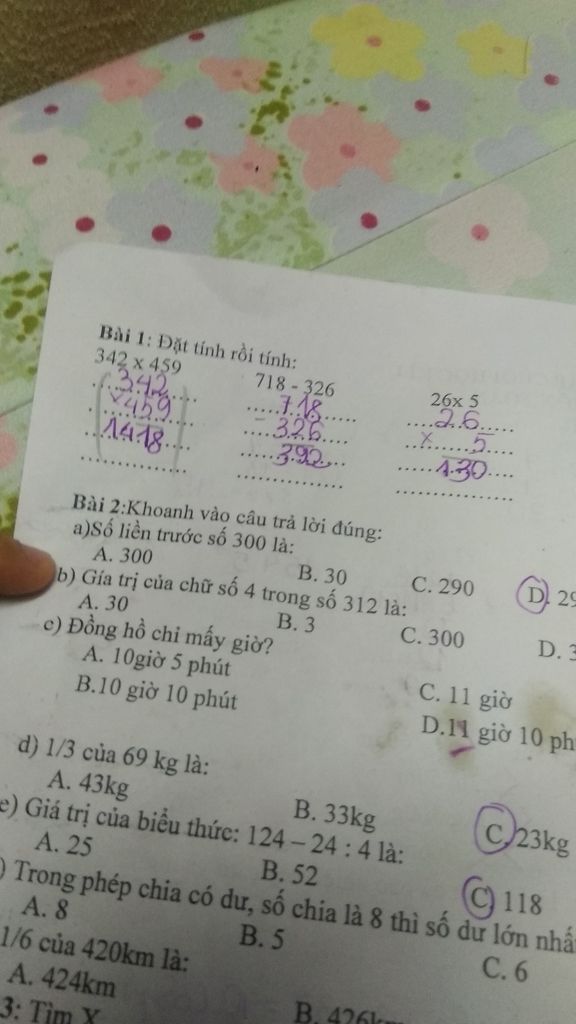 Bài 1: Đặt tính rồi tính:
342 x 459 718 - 326 26x 5
342 718 26
x 459 - 326 x 5
1418 392 130
Bài 2:Khoanh vào câu trả lời đúng:
a)Số liền trước số 300 là:
A. 300 B. 30 C. 290 D. 29
b) Gía trị của chữ số 4 trong số 312 là:
A. 30 B. 3 C. 300 D. 3
c) Đồng hồ chỉ mấy giờ?
A. 10giờ 5 phút C. 11 giờ
B.10 giờ 10 phút D.11 giờ 10 ph
d) 1/3 của 69 kg là:
A. 43kg B. 33kg C. 23kg
e) Giá trị của biểu thức: 124 – 24 : 4 là:
A. 25 B. 52 C) 118
) Trong phép chia có dư, số chia là 8 thì số dư lớn nhấ
A. 8 B. 5 C. 6
1/6 của 420km là:
A. 424km B. 426k
3: Tìm X